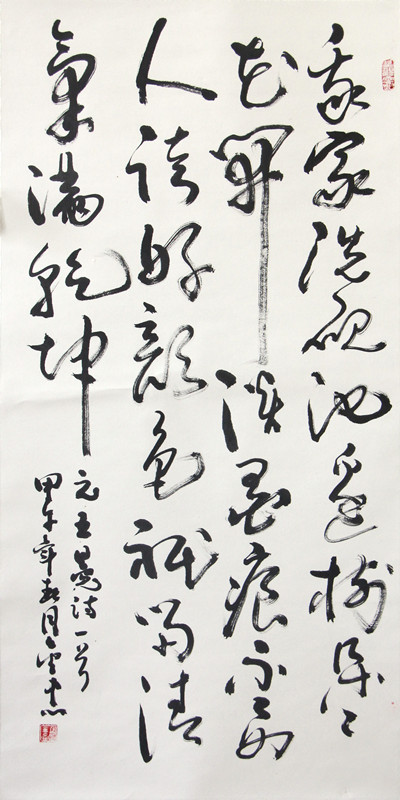 我家洗硯池邊樹朵々
花開淡墨痕不要
人誇好顏色祇留清
氣滿乾坤
元王冕詩一首
甲午年春月